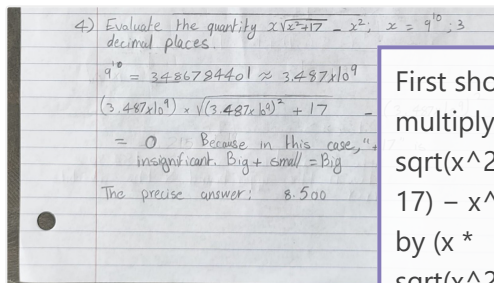 4) Evaluate the quantity x√x²+17 - x²; x = 9¹⁰; 3
decimal places.
9¹⁰ = 3486784401 ≈ 3.487x10⁹
(3.487x10⁹) x √(3.487x10⁹)² + 17 -
= 0 Because in this case, "+
insignificant. Big + small = Big
The precise answer: 8.500
First sho
multiply
sqrt(x^2
17) – x^
by (x *
sqrt(x^2